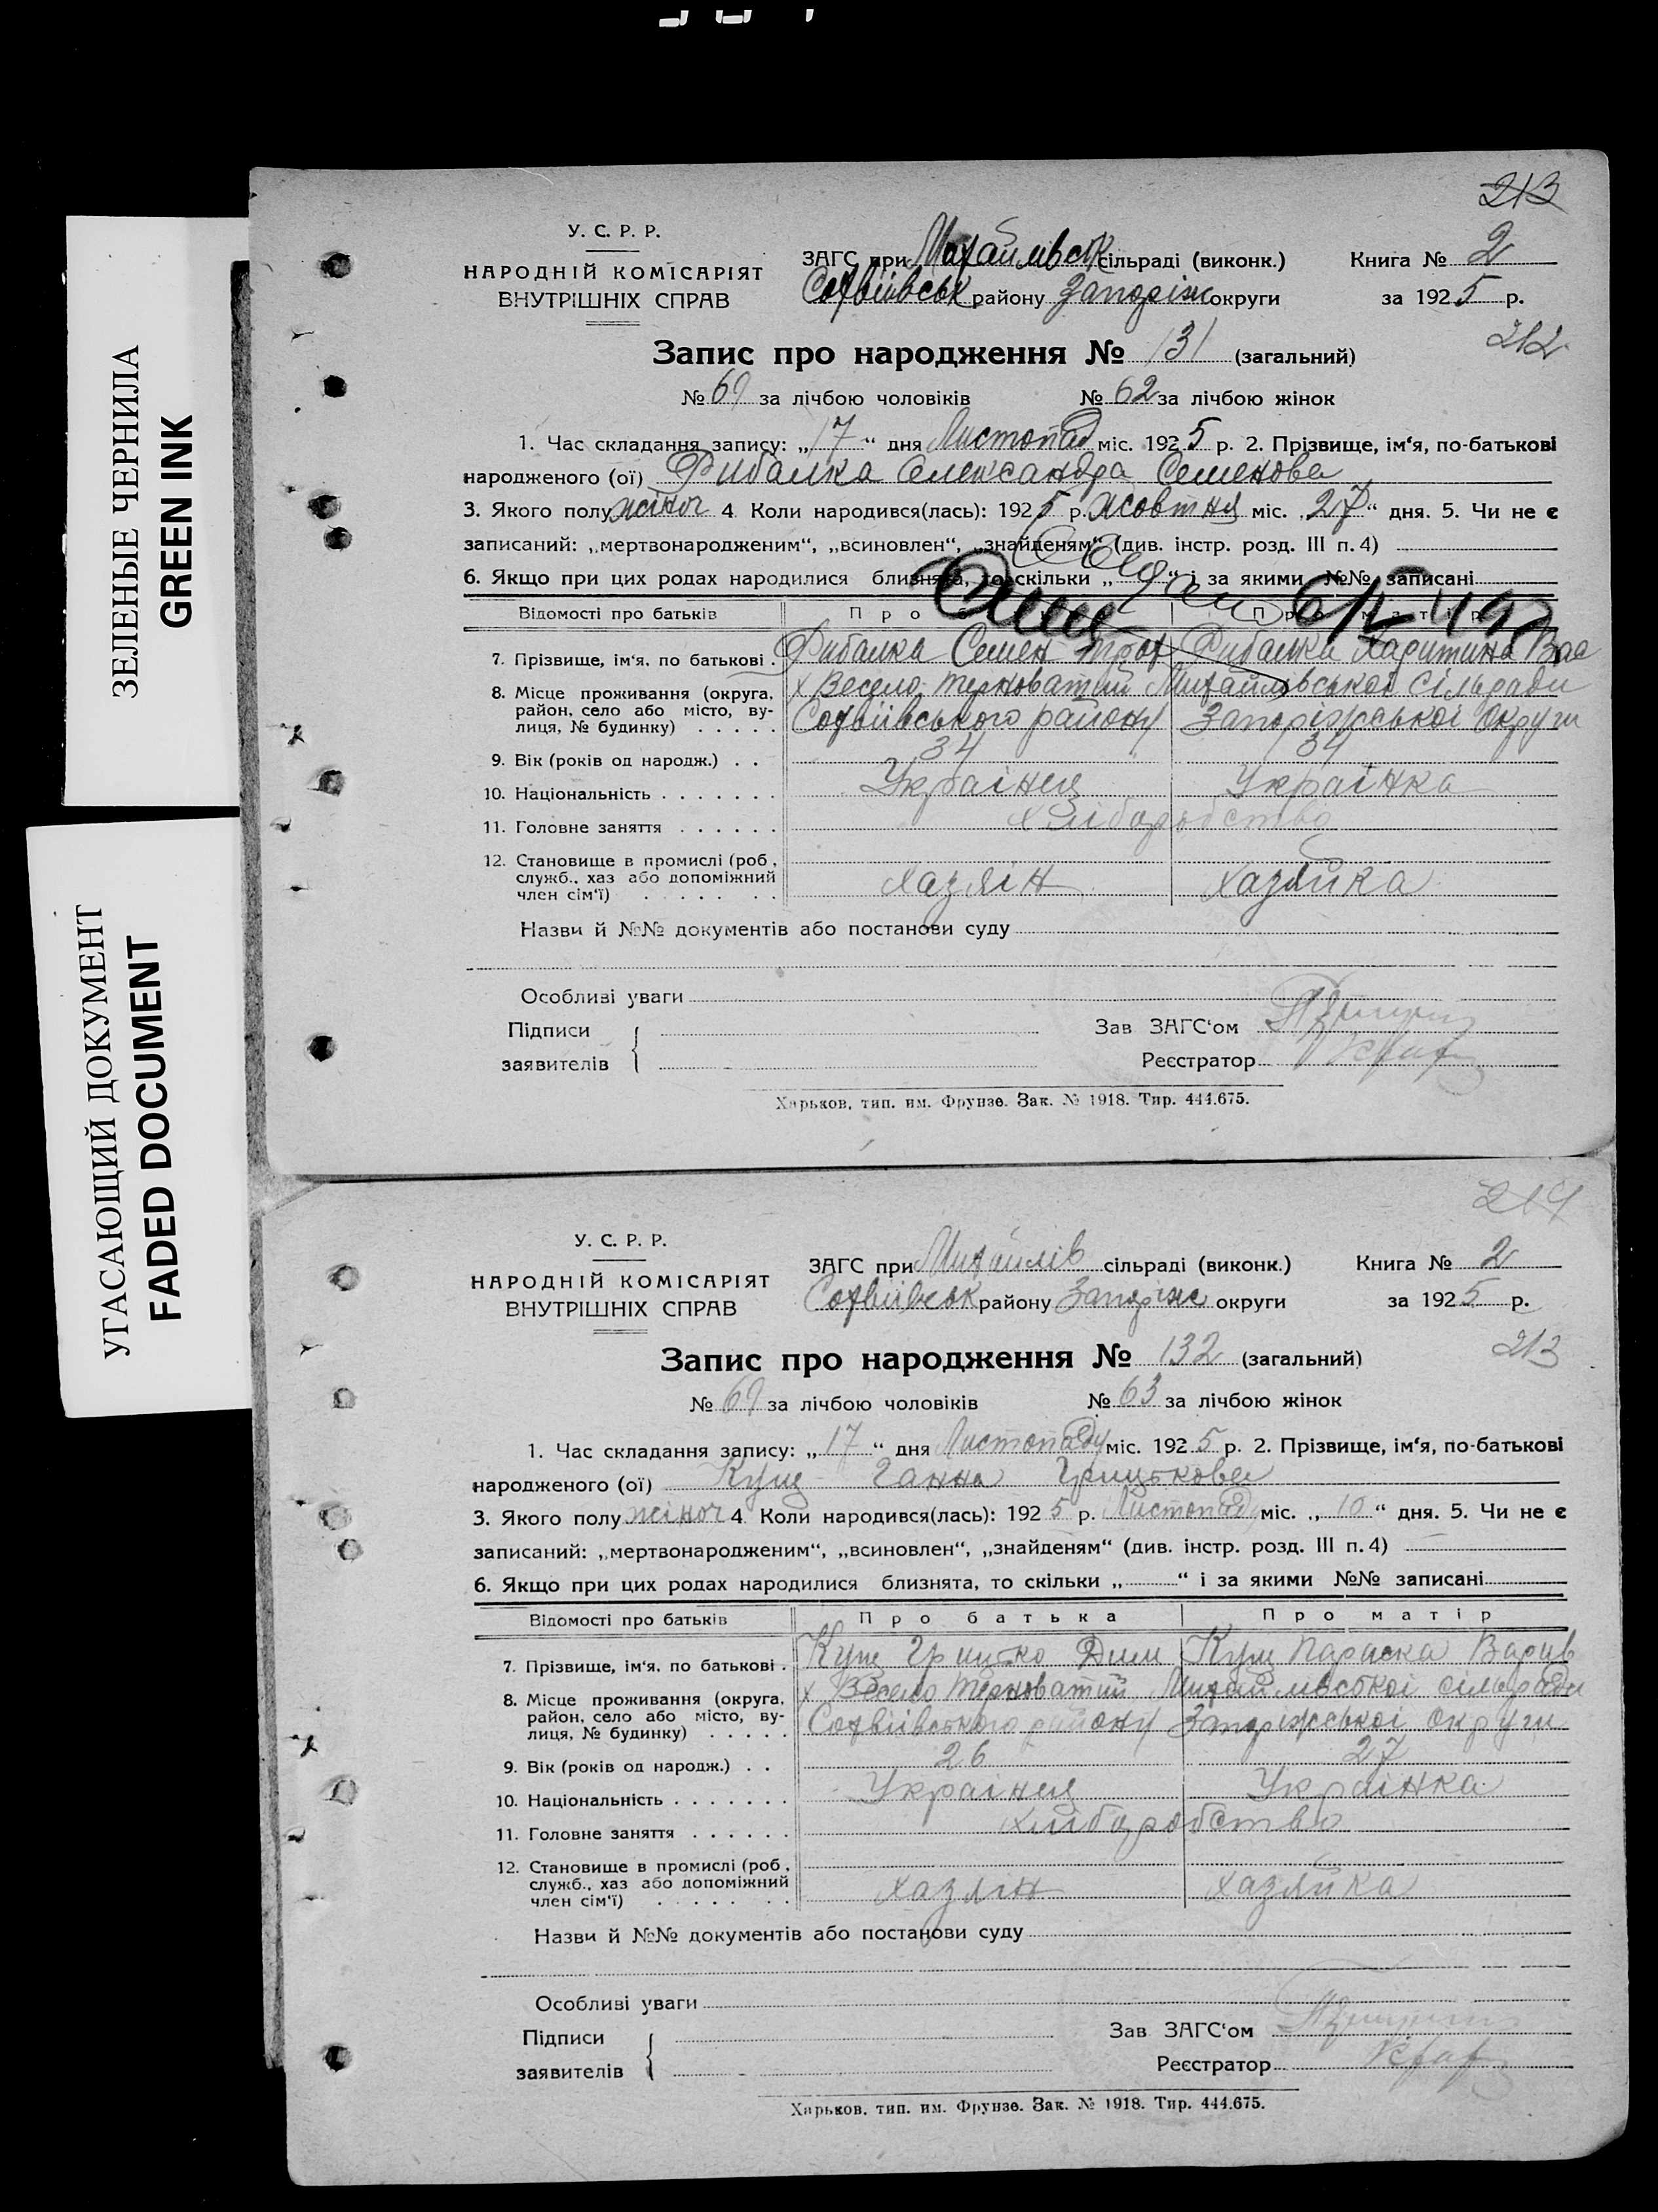 ЗЕЛЕНЫЕ ЧЕРНИЛА
GREEN INK
УГАСАЮЩИЙ ДОКУМЕНТ
FADED DOCUMENT
213
У. С. Р. Р.
НАРОДНІЙ КОМІСАРІЯТ
ВНУТРІШНІХ СПРАВ
ЗАГС при Михайлівськ сільраді (виконк.) Книга № 2
Софіївськ району Запоріж округи за 1925 р.
Запис про народження № 131 (загальний) 212
№ 69 за лічбою чоловіків № 62 за лічбою жінок
1. Час складання запису: „17“ дня Листопад міс. 1925 р. 2. Прізвище, ім‘я, по-батькові
народженого (ої) Рибалка Олександра Семенова
3. Якого полу жіноч 4 Коли народився(лась): 1925 р. жовтня міс. „27“ дня. 5. Чи не є
записаний: „мертвонародженим“, „всиновлен“, „знайденям“ (див. інстр. розд. III п. 4)
6. Якщо при цих родах народилися близнята, то скільки „ “ і за якими №№ записані
Відомості про батьків
7. Прізвище, ім‘я, по батькові . Рибалка Семен Троф Рибалка Харитина Вас
8. Місце проживання (округа, район, село або місто, ву-лиця, № будинку) . . . . . х Весело-Терноватий Михайлівської Сільради
Софіївського району Запоріжської Округи
9. Вік (років од народж.) . . 34 34
10. Національність . . . . . . . Українец Українка
11. Головне заняття . . . . . . хліборобство
12. Становище в промислі (роб., служб., хаз або допоміжний член сім‘ї) . . . . . . . хазяін хазяйка
Назви й №№ документів або постанови суду
Особливі уваги
Підписи
заявителів
Зав ЗАГС‘ом
Реєстратор
Харьков, тип. им. Фрунзе. Зак. № 1918. Тир. 444.675.
214
У. С. Р. Р.
НАРОДНІЙ КОМІСАРІЯТ
ВНУТРІШНІХ СПРАВ
ЗАГС при Михайлів сільраді (виконк.) Книга № 2
Софіївськ району Запоріж округи за 1925 р.
Запис про народження № 132 (загальний) 213
№ 69 за лічбою чоловіків № 63 за лічбою жінок
1. Час складання запису: „17“ дня Листопаду міс. 1925 р. 2. Прізвище, ім‘я, по-батькові
народженого (ої) Кущ Ганна Грицькова
3. Якого полу жіноч 4 Коли народився(лась): 1925 р. Листопад міс. „10“ дня. 5. Чи не є
записаний: „мертвонародженим“, „всиновлен“, „знайденям“ (див. інстр. розд. III п. 4)
6. Якщо при цих родах народилися близнята, то скільки „ “ і за якими №№ записані
Відомості про батьків Про батька Про матір
7. Прізвище, ім‘я, по батькові . Кущ Грицько Дим Кущ Параска
8. Місце проживання (округа, район, село або місто, ву-лиця, № будинку) . . . . . х Весело Терноватий Михайлівської сільради
Софіївського району Запоріжської Округи
9. Вік (років од народж.) . . 26 27
10. Національність . . . . . . . Українец Українка
11. Головне заняття . . . . . . хліборобство
12. Становище в промислі (роб., служб., хаз або допоміжний член сім‘ї) . . . . . . . хазяін хазяйка
Назви й №№ документів або постанови суду
Особливі уваги
Підписи
заявителів
Зав ЗАГС‘ом
Реєстратор
Харьков, тип. им. Фрунзе. Зак. № 1918. Тир. 444.675.